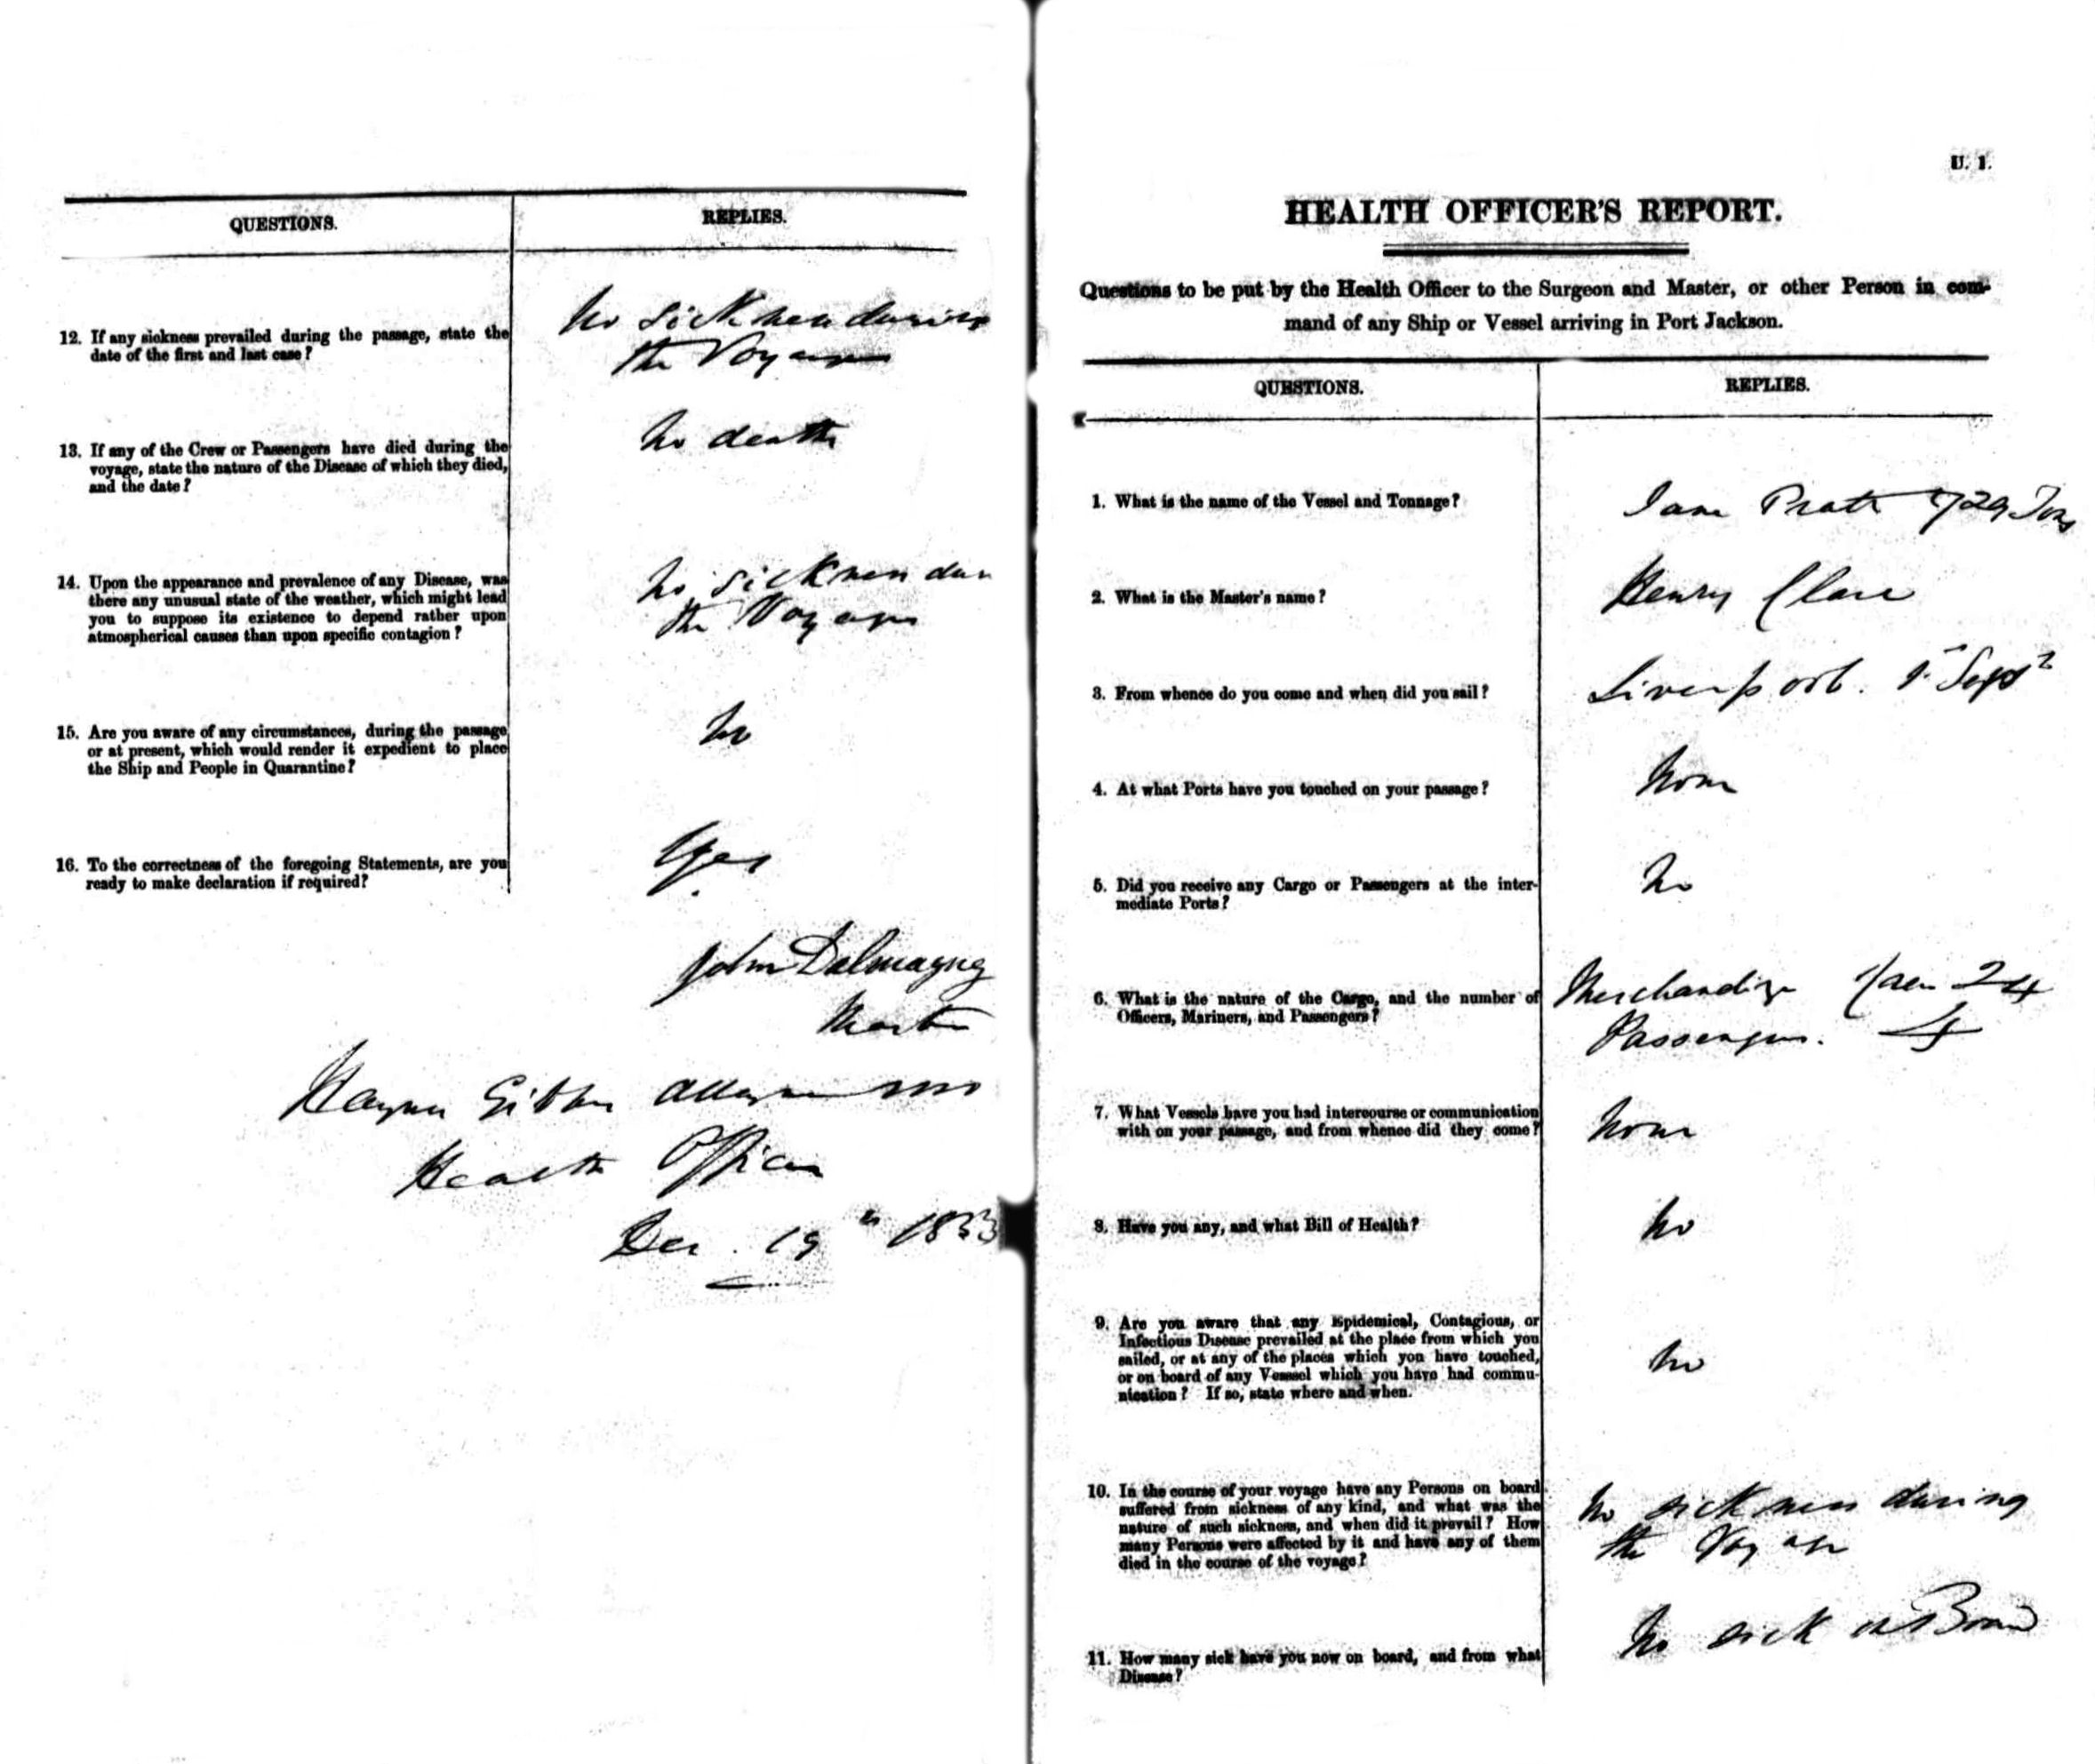 QUESTIONS.
REPLIES.
12. If any sickness prevailed during the passage, state the
date of the first and last case?
No sickness during
the Voyage
13. If any of the Crew or Passengers have died during the
voyage, state the nature of the Disease of which they died,
and the date?
No death
14. Upon the appearance and prevalence of any Disease, was
there any unusual state of the weather, which might lead
you to suppose its existence to depend rather upon
atmospherical causes than upon specific contagion?
No sickness dur
the Voyage
15. Are you aware of any circumstances, during the passage
or at present, which would render it expedient to place
the Ship and People in Quarantine?
No
16. To the correctness of the foregoing Statements, are you
ready to make declaration if required?
Yes
John
Master
Haynes Gibbes Alleyne MD
Health Officer
Dec. 19th 1853
U. 1.
HEALTH OFFICER'S REPORT.
Questions to be put by the Health Officer to the Surgeon and Master, or other Person in com-
mand of any Ship or Vessel arriving in Port Jackson.
QUESTIONS.
REPLIES.
1. What is the name of the Vessel and Tonnage?
Jane Pratt 729 Tons
2. What is the Master's name?
Henry Clare
3. From whence do you come and when did you sail?
Liverpool. 1st Sept
4. At what Ports have you touched on your passage?
None
5. Did you receive any Cargo or Passengers at the inter-
mediate Ports?
No
6. What is the nature of the Cargo, and the number of
Officers, Mariners, and Passengers?
Merchandize Crew 24
Passengers. 4
7. What Vessels have you had intercourse or communication
with on your passage, and from whence did they come?
None
8. Have you any, and what Bill of Health?
No
9. Are you aware that any Epidemical, Contagious, or
Infectious Disease prevailed at the place from which you
sailed, or at any of the places which you have touched,
or on board of any Vessel which you have had commu-
nication? If so, state where and when.
No
10. In the course of your voyage have any Persons on board
suffered from sickness of any kind, and what was the
nature of such sickness, and when did it prevail? How
many Persons were affected by it and have any of them
died in the course of the voyage?
No sickness during
the Voyage
11. How many sick have you now on board, and from what
Disease?
No sick on Board